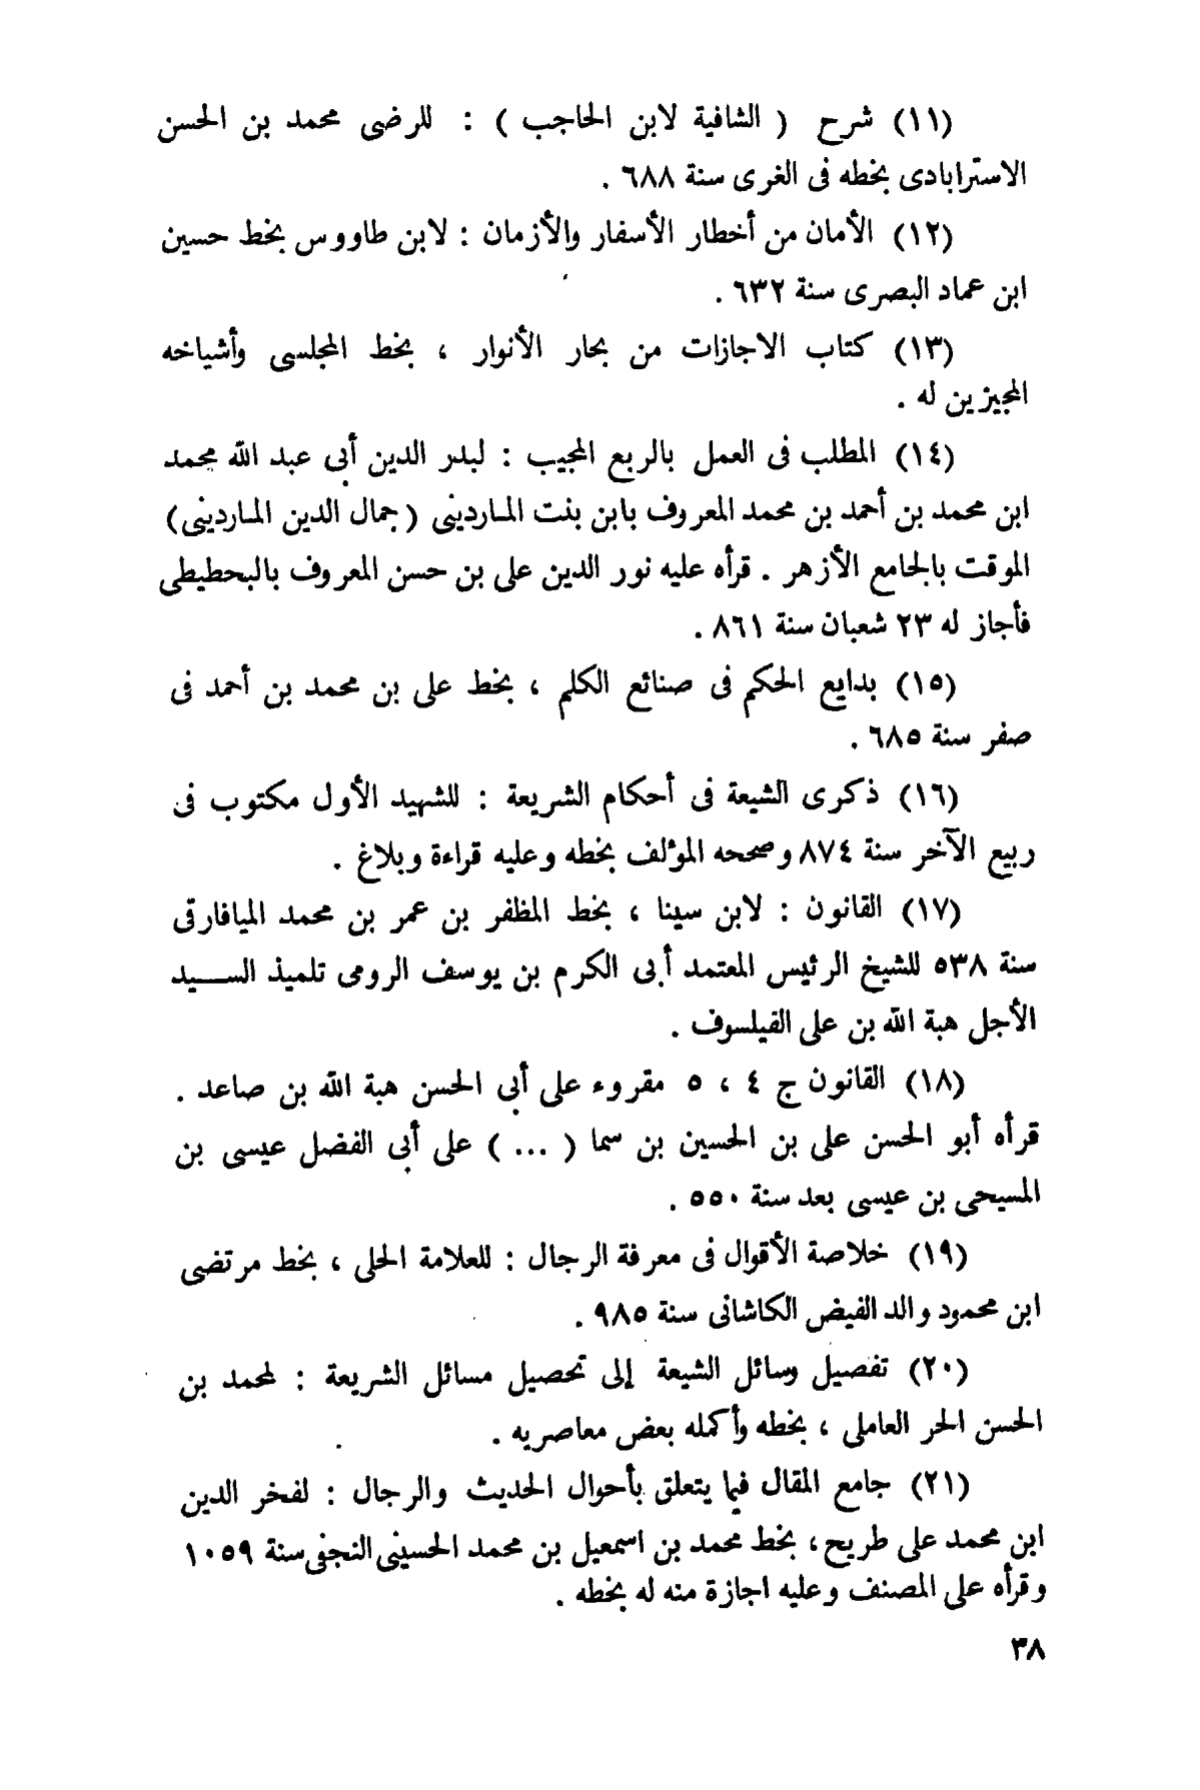 (١١) شرح ( الشافية لابن الحاجب ) : للرضى محمد بن الحسن
الاسترابادى بخطه فى الغرى سنة ٦٨٨ .
(١٢) الأمان من أخطار الأسفار والأزمان : لابن طاووس بخط حسين
ابن عماد البصرى سنة ٦٣٢ .
(١٣) كتاب الاجازات من بحار الأنوار ، بخط المجلسى وأشياخه
المجيزين له .
(١٤) المطلب فى العمل بالربع المجيب : لبدر الدين أبى عبد الله محمد
ابن محمد بن أحمد بن محمد المعروف بابن بنت الماردينى ( جمال الدين الماردينى)
الموقت بالجامع الأزهر . قرأه عليه نور الدين على بن حسن المعروف بالبحطيطى
فأجاز له ٢٣ شعبان سنة ٨٦١ .
(١٥) بدايع الحكم فى صنائع الكلم ، بخط على بن محمد بن أحمد فى
صفر سنة ٦٨٥ .
(١٦) ذكرى الشيعة فى أحكام الشريعة : للشهيد الأول مكتوب فى
ربيع الآخر سنة ٨٧٤ وصححه المؤلف بخطه وعليه قراءة وبلاغ .
(١٧) القانون : لابن سينا ، بخط المظفر بن عمر بن محمد الميافارقى
سنة ٥٣٨ للشيخ الرئيس المعتمد أبى الكرم بن يوسف الرومى تلميذ الســـيد
الأجل هبة الله بن على الفيلسوف .
(١٨) القانون ج ٤ ، ٥ مقروء على أبى الحسن هبة الله بن صاعد .
قرأه أبو الحسن على بن الحسين بن سما ( ... ) على أبى الفضل عيسى بن
المسيحى بن عيسى بعد سنة ٥٥٠ .
(١٩) خلاصة الأقوال فى معرفة الرجال : للعلامة الحلى ، بخط مرتضى
ابن محمود والد الفيض الكاشانى سنة ٩٨٥ .
(٢٠) تفصيل وسائل الشيعة إلى تحصيل مسائل الشريعة : لمحمد بن
الحسن الحر العاملى ، بخطه وأكمله بعض معاصريه .
(٢١) جامع المقال فيما يتعلق بأحوال الحديث والرجال : لفخر الدين
ابن محمد على طريح ، بخط محمد بن اسمعيل بن محمد الحسينى النجفى سنة ١٠٥٩
وقرأه على المصنف وعليه اجازة منه له بخطه .
٣٨